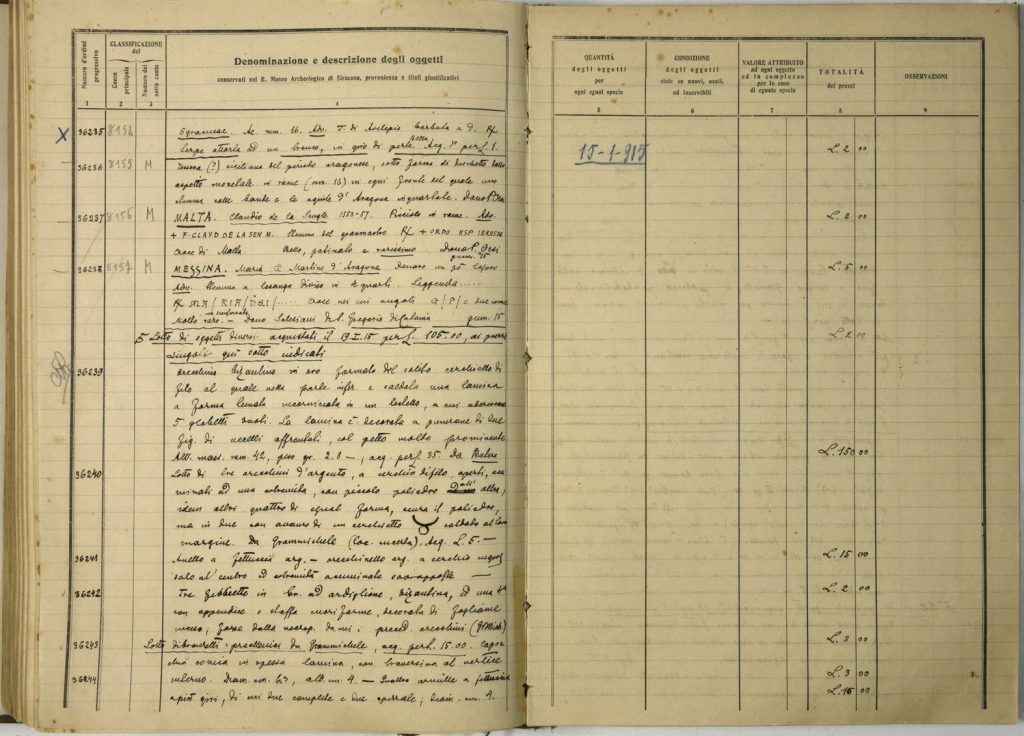 Numero d'ordine progressivo
CLASSIFICAZIONE del
Conto principale
Numero del sotto conto
Denominazione e descrizione degli oggetti
conservati nel R. Museo Archeologico di Siracusa, provenienza e titoli giustificativi
1 2 3 4
X 36235 8154 Syracusae. Ae. mm. 16. Adv. T. di Asclepio barbata a d. ℞
serpe attorta ad un in giro di perle. Acq. per £. 1.
36236 8155 M Tessera (?) siciliana del periodo aragonese, sotto forma di dischetto dallo
aspetto monetale in rame (mm. 16) in ogni fronte del quale uno
stemma colle bande e le aquile d'Aragona inquartate. Dono P. Orsi
36237 8156 M MALTA. Claudio de La Sengle 1553-57. Picciolo in rame. Adv.
+ F. CLAVD DE LA SEN M. Stemma del granmastro ℞ + ORDO HSP IERVSEM
Croce di Malta. Bello, patinato e rarissimo Dono P. Orsi
genn. 15
36238 8157 M MESSINA. Maria e Martino d'Aragona Denaro un po'
Adv. Stemma a losanga diviso in 4 quarti. Leggenda......
℞ MA/RIA/DEI/..... Croce nei cui angoli
Molto raro. - Dono Salesiani di S. Gregorio di Catania genn. 15
5 Lotto di oggetti diversi acquistati il 19.I.15 per £. 105.00, ai prezzi
singoli qui sotto indicati
36239 Orecchino bizantino in oro formato del solito cerchietto di
filo al quale nella parte infer. è saldata una lamina
a forma lunata incorniciata in un listello, a cui aderiscono
5 globetti vuoti. La lamina è decorata a punzone di due
fig. di uccelli affrontati, col petto molto prominente
Alt. mass. mm. 42, peso gr. 2.8 -; acq. per £ 35. Da
36240 Lotto di tre orecchini d'argento, a cerchio di filo, aperti, acu-
minati ad una estremità, con piccolo poliedro all'altra;
idem altri quattro di egual forma, senza il poliedro,
ma in due con avanzo di un cerchietto saldato al loro
margine. Da Grammichele (loc. incerta). Acq. L. 5. -
36241 Anello a fettuccia arg. - orecchinetto arg. a cerchio
al centro ed estremità acuminate opposte -
36242 Tre fibbiette in br. ad ardiglione, bizantine, ed una
con appendice e staffa cuoriforme, decorata di fogliame
inciso; forse dalla necrop. da cui i preced. orecchini
36243 Lotto di bronzetti preellenici da Grammichele, acq. per L. 15.00.
conica in spessa lamina, con traversina al vertice
interno. Diam. cm. 6½, alt. cm. 4. - Quattro armille a fettuccia
36244 a più giri, di cui due complete e due spezzate; diam. cm. 4.
QUANTITÀ degli oggetti per ogni egual specie
CONDIZIONE degli oggetti cioè: se nuovi, usati, od inservibili
VALORE ATTRIBUITO ad ogni oggetto ed in complesso per le cose di eguale specie
TOTALITÀ dei prezzi
OSSERVAZIONI
5 6 7 8 9
15-1-915
L. 2 00
L. 2 00
L. 5 00
L. 2 00
L. 150 00
L. 15 00
L. 2 00
L. 3 00
L. 3 00
L. 16 00